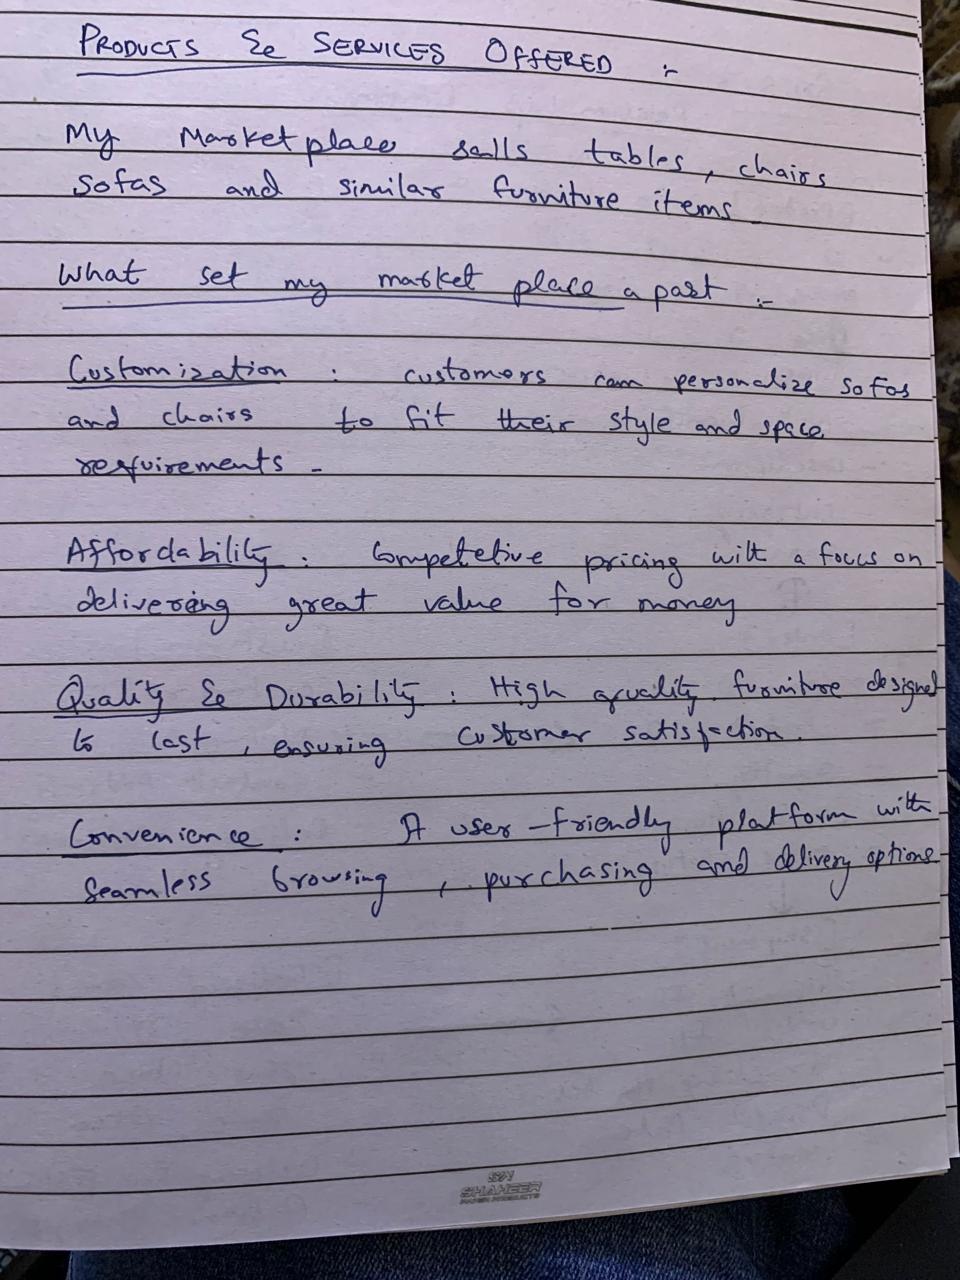 PRODUCTS & SERVICES OFFERED :-
My Marketplace sells tables, chairs
sofas and similar furniture items
What set my market place a part :-
Customization : customers can personalize sofas
and chairs to fit their style and space
requirements -
Affordability : Competetive pricing with a focus on
delivering great value for money
Quality & Durability : High quality furniture designed
to last, ensuring customer satisfaction.
Convenience : A user-friendly platform with
seamless browsing, purchasing and delivery options
SHAHEER
PAPER PRODUCTS